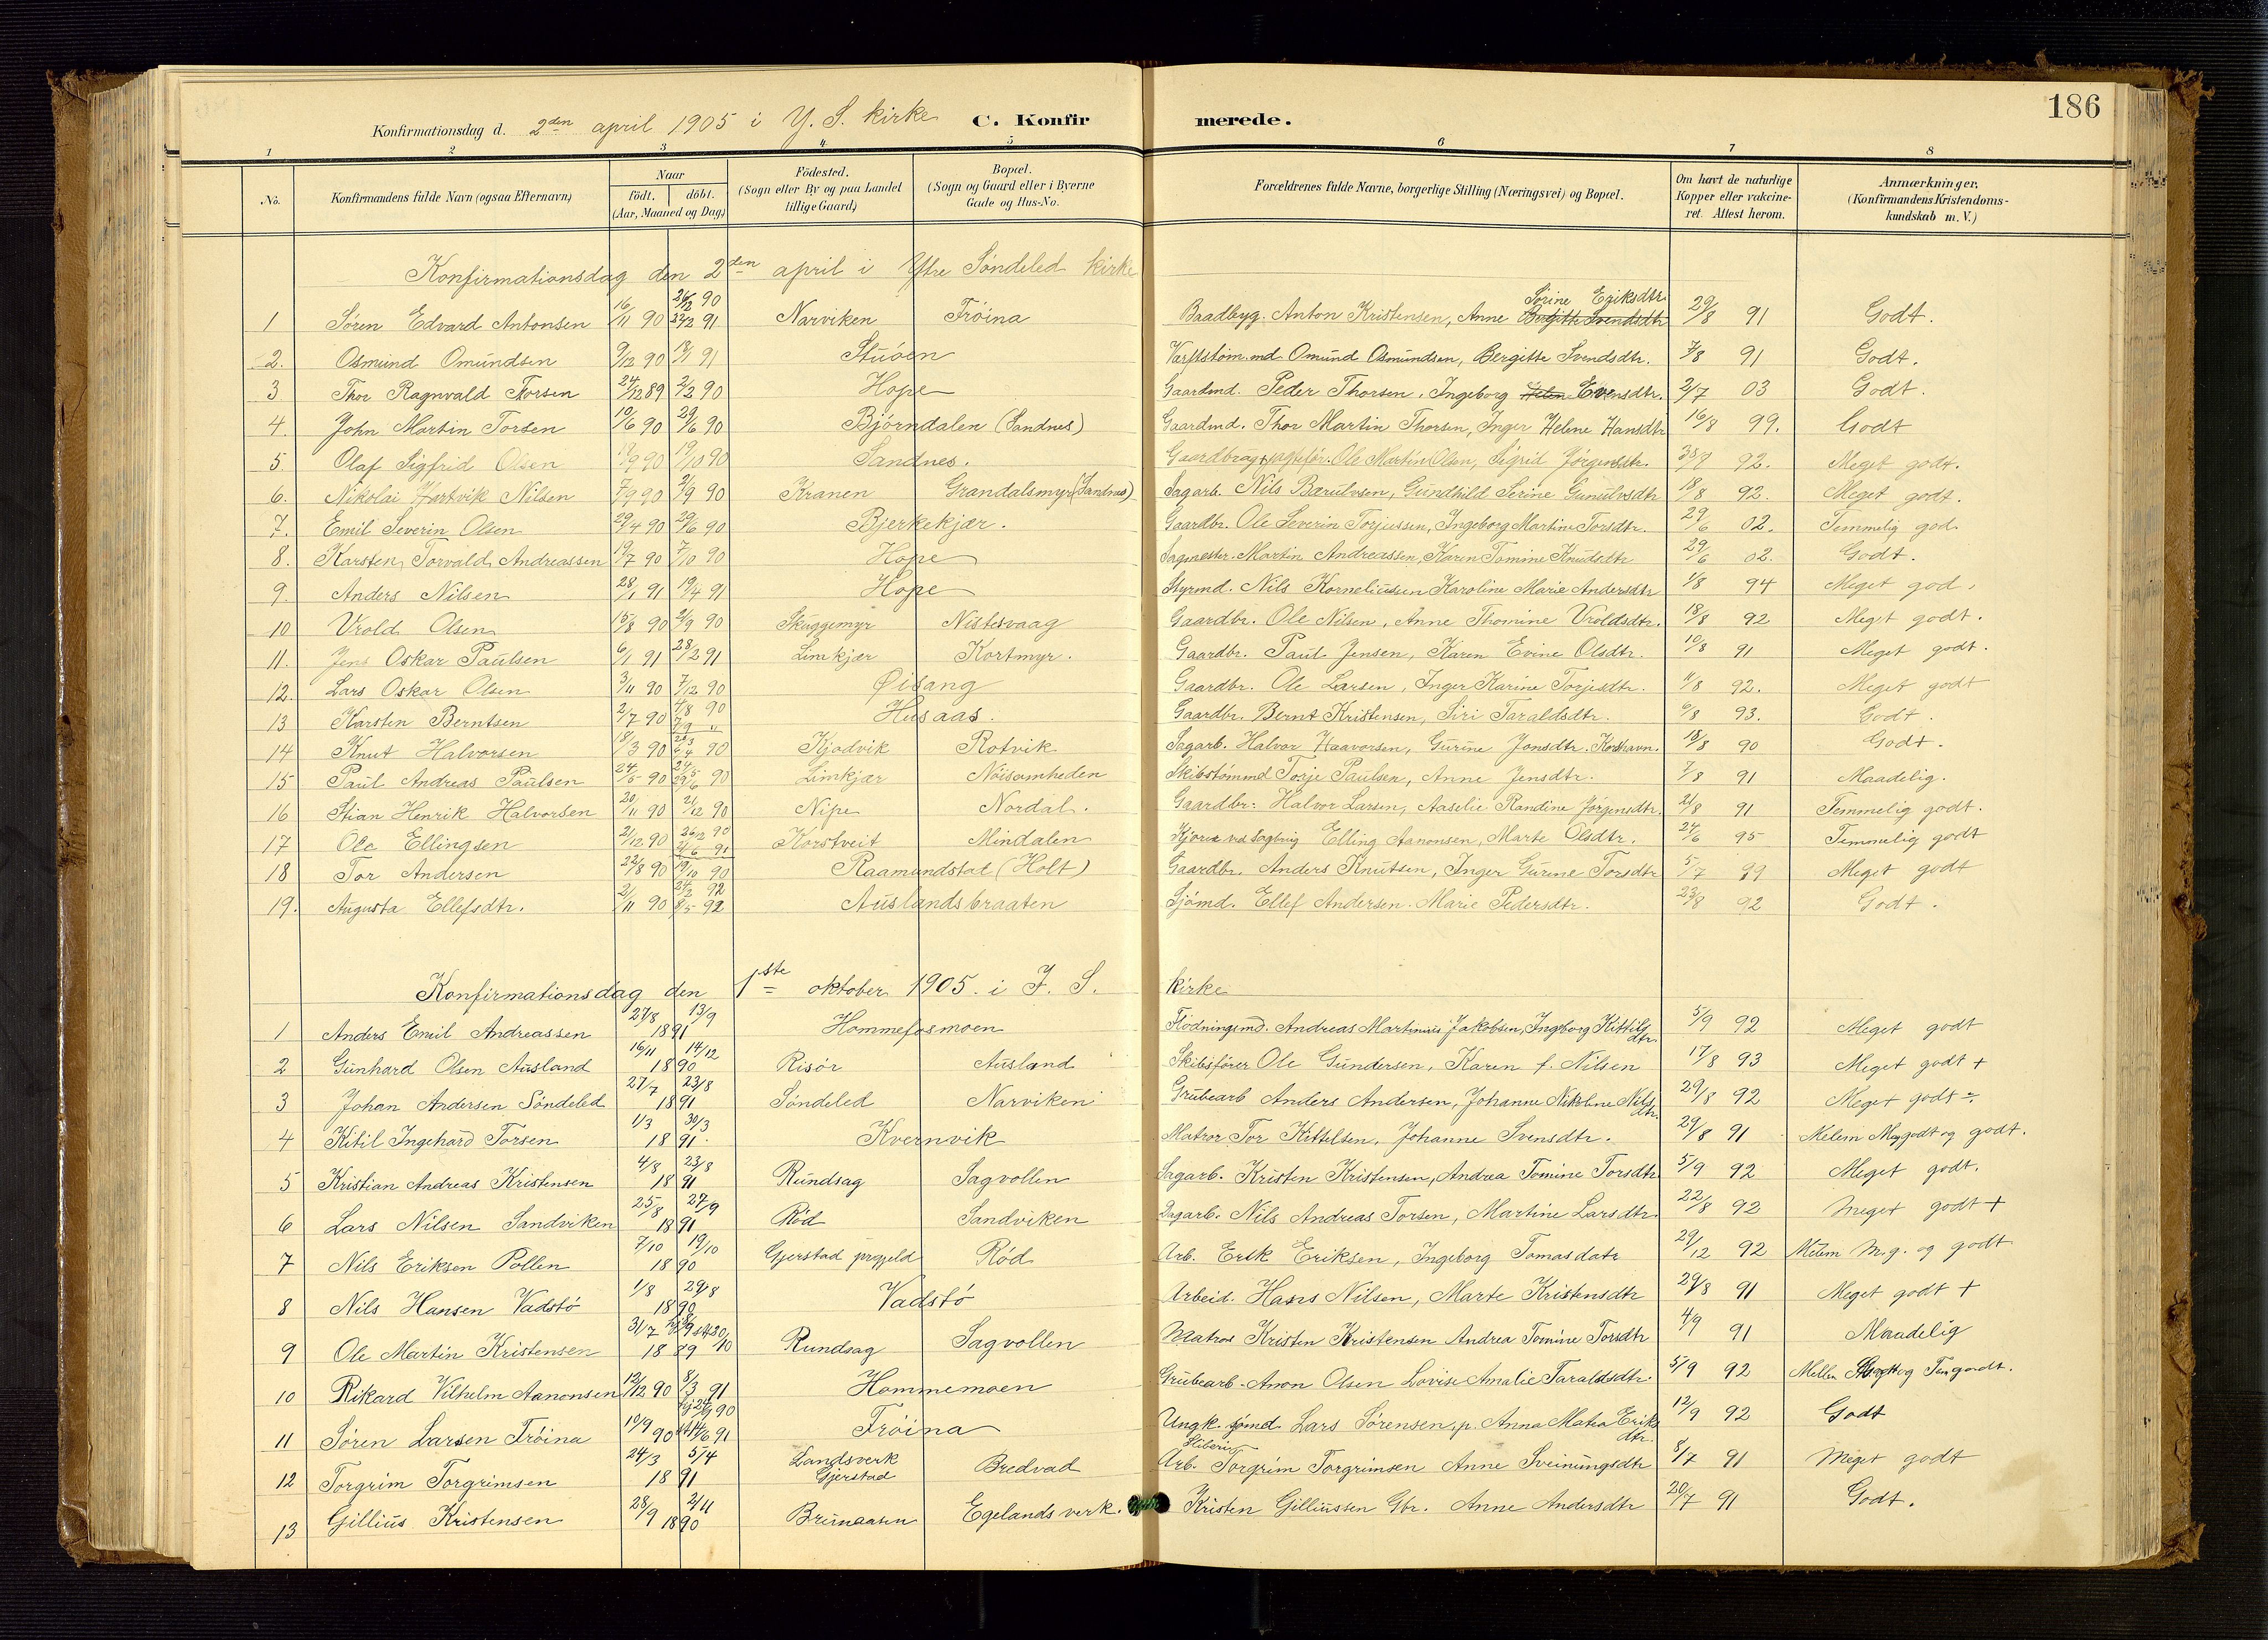 186
Konfirmationsdag d. 2den april 1905 i Y. S. kirke C. Konfirmerede.
1 2 3 4 5 6 7 8
No. Konfirmandens fulde Navn (ogsaa Efternavn) Naar födt. döbt. (Aar, Maaned og Dag) Födested. (Sogn eller By og paa Landet tillige Gaard) Bopæl. (Sogn og Gaard eller i Byerne Gade og Hus-No. Forældrenes fulde Navne, borgerlige Stilling (Næringsvei) og Bopæl. Om havt de naturlige Kopper eller vakcineret. Attest herom. Anmærkninger, (Konfirmandens Kristendomskundskab m. V.)
Konfirmationsdag den 2den april i Ytre Söndeled kirke
1 Søren Edvard Antonsen 16/11 90 26/12 90 22/2 91 Narviken Fröina Baadbyg. Anton Kristensen, Anne Sørine Eriksdtr. 29/8 91 Godt.
2. Osmund Omundsen 9/12 90 18/1 91 Stuöen Omund Osmundsen, Bergitte Svendsdtr. 7/8 91 Godt.
3 Thor Ragnvald Torsen 24/12 89 2/2 90 Hope Gaardmd. Peder Thorsen, Ingeborg Evensdtr. 2/7 03 Godt.
4. John Martin Torsen 10/6 90 29/6 90 Bjørndalen (Sandnes) Gaardmd. Thor Martin Thorsen, Inger Helene Hansdtr 16/8 99. Godt
5. Olaf Sigfrid Olsen 19/9 90 19/10 90 Sandnes. Ole Martin Olsen, Sigrid Jørgensdtr. 92. Meget godt.
6. Nikolai Hartvik Nilsen 7/9 90 21/9 90 Kranen Grandalsmyr (Sandnes) Sagarb. Nils Bærulvsen, Gundhild Serine Gunulvsdtr 18/8 92. Meget godt.
7. Emil Severin Olsen 29/4 90 29/6 90 Bjerkekjær. Gaardbr. Ole Severin Torjussen, Ingeborg Martine Torsdtr. 29/6 02. Temmelig god.
8. Karsten Torvald Andreassen 19/7 90 7/10 90 Hope Sagmester. Martin Andreassen, Karen Tomine Knudsdtr 29/6 02. Godt.
9. Anders Nilsen 28/1 91 19/4 91 Hope Styrmd. Nils Korneliussen Karoline Marie Andersdtr 1/8 94 Meget god.
10 Vrold Olsen 15/8 90 21/9 90 Skuggemyr Nistesvaag Gaardbr. Ole Nilsen, Anne Thomine Vroldsdtr. 18/8 92 Meget godt.
11. Jens Oskar Paulsen 6/1 91 28/2 91 Limkjær Kortmyr. Gaardbr. Paul Jensen, Karen Evine Olsdtr. 10/8 91 Meget godt.
12. Lars Oskar Olsen 3/11 90 7/12 90 Øisang Gaardbr. Ole Larsen, Inger Karine Torjesdtr. 11/8 92. Meget godt
13 Karsten Berntsen 2/7 90 4/8 90 7/9 " Husaas. Gaardbr. Bernt Kristensen, Siri Taraldsdtr. 6/8 93. Godt.
14 Knut Halvorsen 18/3 90 90 Kjødvik Rotvik Sagarb. Halvor Haavorsen, Gurine Jonsdtr. 18/8 90 Godt.
15 Paul Andreas Paulsen 24/5 90 29/6 90 Limkjær Nöisomheden Skibstømmd Torje Paulsen, Anne Jensdtr. 7/8 91 Maadelig.
16 Stian Henrik Halvorsen 20/11 90 21/12 90 Nipe Nordal. Gaardbr: Halvor Larsen, Aaselie Randine Jørgensdtr. 21/8 91 Temmelig godt.
17 Ole Ellingsen 2/12 90 26/12 90 21/6 91 Korstveit Mindalen Elling Aanonsen, Marte Olsdtr. 24/6 95 Temmelig godt
18 Tor Andersen 22/8 90 19/10 90 Raamundstad (Holt) Gaardbr. Anders Knutsen, Inger Gurine Torsdtr 5/7 99 Meget godt
19. Augusta Ellefsdtr. 2/11 90 24/2 92 8/5 92 Auslandsbraaten Sjømd. Ellef Andersen. Marie Pedersdtr. 23/8 92 Godt.
Konfirmationsdag den 1ste oktober 1905. i I. S. kirke
1 Anders Emil Andreassen 27/8 13/9 1891 Hommefosmoen Flödningsmd. Andreas Martinius Jakobsen, Ingeborg Kittilsdtr. 5/9 92 Meget godt
2 Gunhard Olsen Ausland 16/11 14/12 1890 Risör Ausland Skibsfører Ole Gundersen, Karen f. Nilsen 17/8 93 Meget godt +
3 Johan Andersen Söndeled 27/7 23/8 1891 Söndeled Narviken Grubearb Anders Andersen, Johanne Nikoline Nilsdtr. 29/8 92 Meget godt ÷
4 Kitil Ingehard Torsen 1/3 30/3 1891. Kvernvik Matros Tor Kittelsen, Johanne Svensdtr. 29/8 91 Melem Meg godt og godt.
5 Kristian Andreas Kristensen 4/8 23/8 1891 Rundsag Sagvollen Sagarb. Kristen Kristensen, Andrea Tomine Torsdtr 5/9 92 Meget godt.
6 Lars Nilsen Sandviken 25/8 27/9 1891 Röd Sandviken Dagarb. Nils Andreas Torsen, Martine Larsdtr. 22/8 92 Meget godt +
7 Nils Eriksen Pollen 7/10 19/10 1890 Gjerstad prgjeld Röd Arb. Erik Eriksen, Ingeborg Tomasdatr 29/12 92 Melem M.g. og godt
8 Nils Hansen Vadstö 1/8 29/8 1890 Vadstö Arbeid. Hans Nilsen, Marte Kristensdtr 29/8 91 Meget godt +
9 Ole Martin Kristensen 31/7 1889 Rundsag Sagvollen Matros Kristen Kristensen Andrea Tomine Torsdtr 4/9 91 Maadelig
10 Rikard Vilhelm Aanonsen 12/12 90 8/3 91 Hommemoen Grubearb. Anon Olsen Lovise Amalie Taraldsdtr. 5/9 92 Mellem
11 Søren Larsen Fröina 10/9 90 Fröina Ungk. sømd. Lars Sørensen, p. Anna Mathea Eriksdtr. 12/9 92 Godt
12 Torgrim Torgrimsen 24/3 5/4 1891 Landsverk Gjerstad Bredvad Sliberi Arb. Torgrim Torgrimsen Anne Sveinungsdtr 8/7 91 Meget godt
13 Gillius Kristensen 28/9 2/11 1890 Bruneaasen Egelands verk. Kristen Gilliussen Gbr. Anne Andersdtr 20/7 91 Godt.